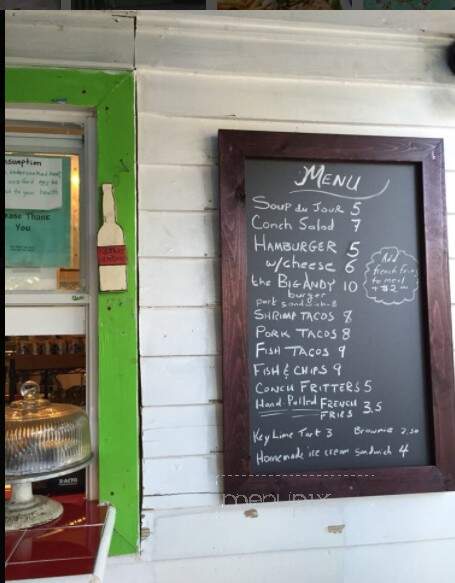 MENU
Soup du Jour 5
Conch Salad 7
HAMBURGER 5
w/cheese 6
the BIG ANDY 10
burger
pork sandwich 8
SHRIMP TACOS 8
PORK TACOS 8
FISH TACOS 9
FISH & CHIPS 9
CONCH FRITTERS 5
Hand-Pulled FRENCH
FRIES 3.5
Key Lime Tart 3 Brownie 2.50
Homemade ice cream sandwich 4
Add
french fries
to meal
+ $2
Thank
You
menupix